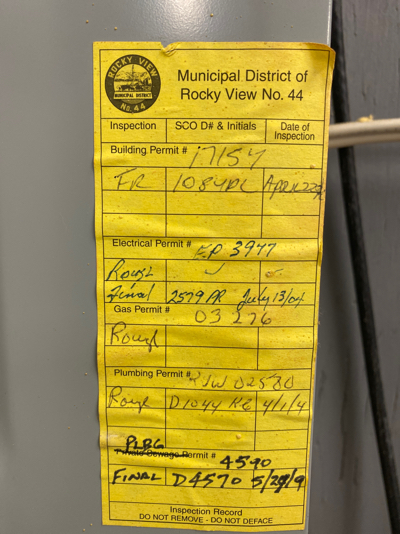 ROCKY VIEW
MUNICIPAL DISTRICT
No. 44
Municipal District of
Rocky View No. 44
Inspection SCO D# & Initials Date of Inspection
Building Permit # 17154
FR 1084DL April
Electrical Permit # EP 3977
Rough
Final 2579 July 13/04
Gas Permit # 03 276
Rough
Plumbing Permit # 02580
Rough D1044 4/1/4
PLBG
Private Sewage Permit # 4590
FINAL D4570
Inspection Record
DO NOT REMOVE - DO NOT DEFACE